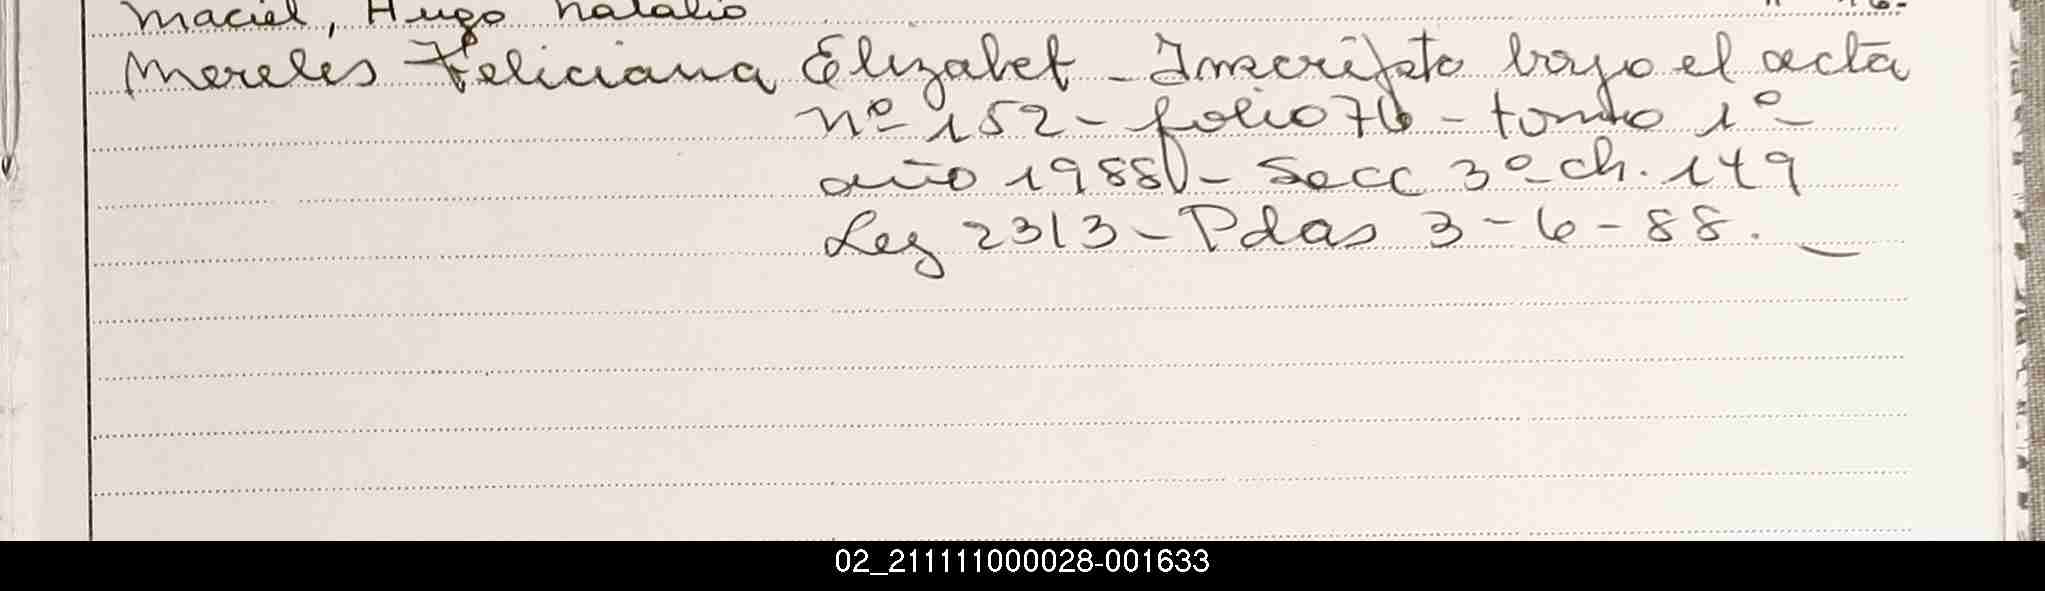 Maciel, Hugo Natalio
Mereles Feliciana Elizabet - Inscripto bajo el acta
nº 152 - folio 76 - tomo 1º
año 1988 - Secc 3º ch. 149
Ley 2313 - Pdas 3-6-88.
02_211111000028-001633